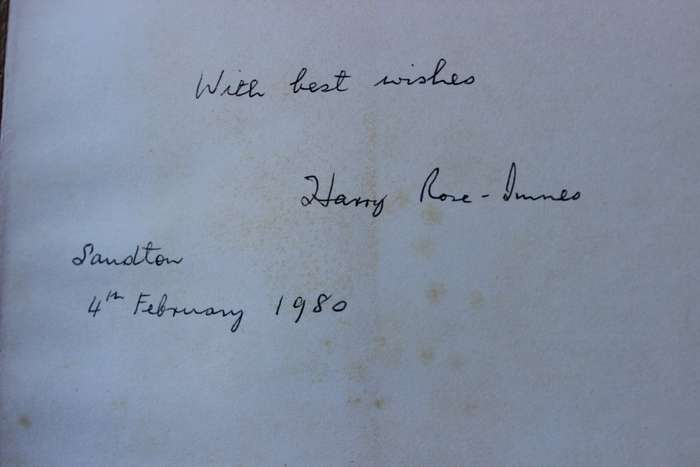 With best wishes
Harry Rose-Innes
Sandton
4th February 1980